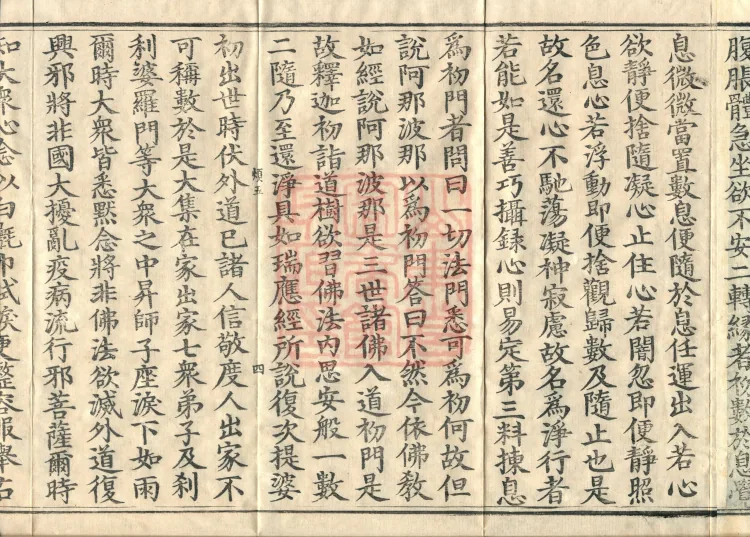 腹脹體急坐欲不安二轉緣者初數於息覺
息微微當置數息便隨於息任運出入若心
欲靜便捨隨凝心止住心若闇忽即便靜照
色息心若浮動即便捨觀歸數及隨止也是
故名還心不馳蕩凝神寂慮故名爲淨行者
若能如是善巧攝錄心則易定第三料揀息
爲初門者問曰一切法門悉可爲初何故但
說阿那波那以爲初門答曰不然今依佛教
如經說阿那波那是三世諸佛入道初門是
故釋迦初詣道樹欲習佛法內思安般一數
二隨乃至還淨具如瑞應經所說復次提婆
傾五 四
初出世時伏外道已諸人信敬度人出家不
可稱數於是大集在家出家七衆弟子及剎
利婆羅門等大衆之中昇師子座淚下如雨
爾時大衆皆悉默念將非佛法欲滅外道復
興邪將非國大擾亂疫病流行邪菩薩爾時
知大衆心念以白氎巾拭淚便整容服舉右